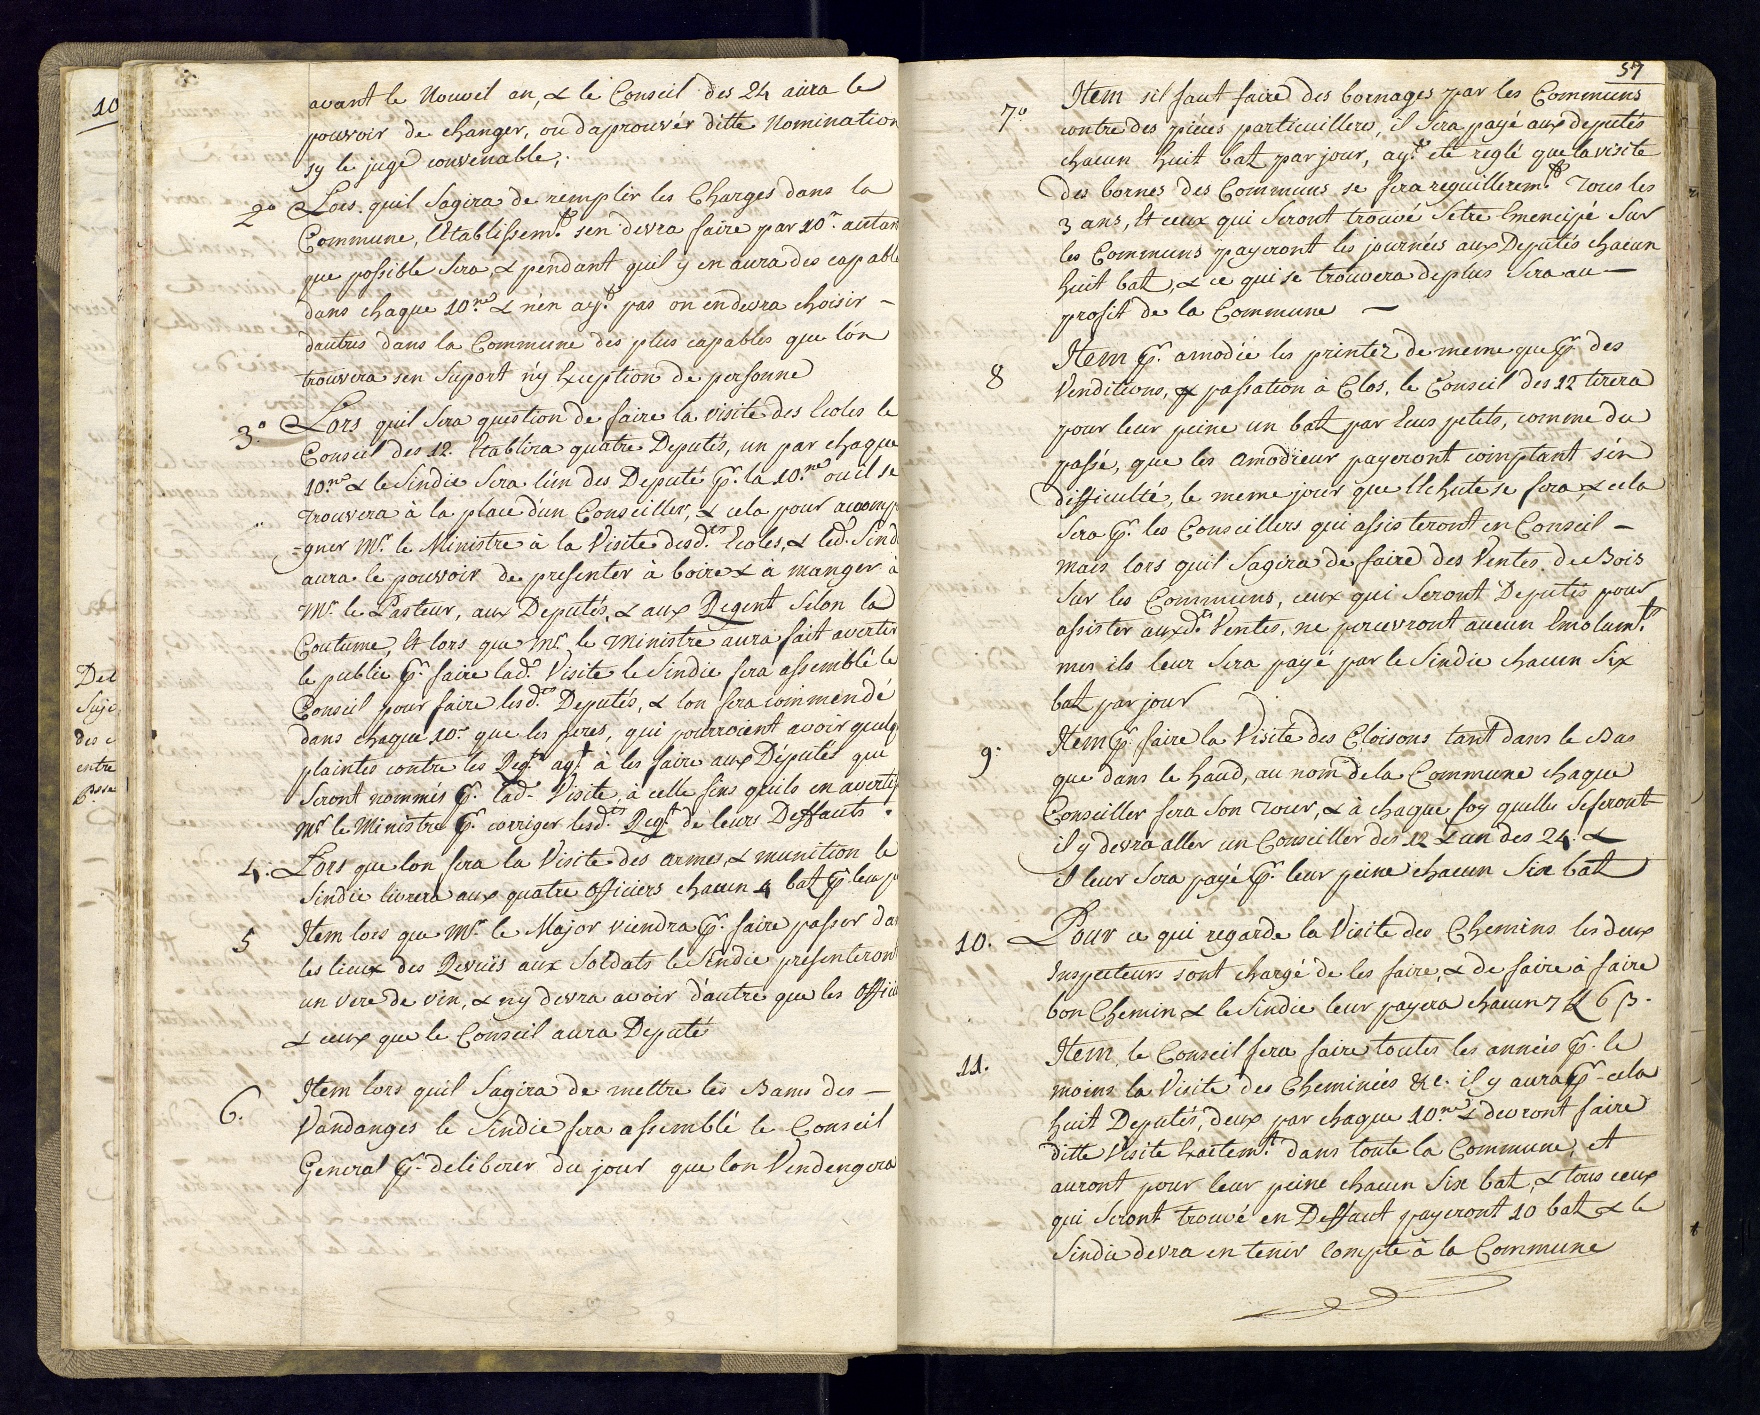 10
avant le Nouvel an, & le Conseil des 24 aura le
pouvoir de changer, ou daprouvér ditte Nomination
sy le juge convenable,.
2° Lors quil Sagira de remplir les Charges dans la
Commune, letablissemt. sen devra faire par 10e. autan
que possible sera, & pendant quil y en aura des capable
dans chaque 10ne. & n'en ayt. pas on en devra choisir -
dautres dans la Commune des plus capables que lón
trouvera sen Suport n'y Exception de personne
3° Lors quil Sera question de faire la visite des Ecoles le
Conseil des 12. Etablira quatre Deputés, un par chaque
10ne. & le Sindic Sera lún des Deputé pr. la 10ne. ou il se
trouvera à la place dún Conseiller, & cela pour acomp
=gner Mr. le Ministre à la Visite desdtes. Ecoles, & led. Sind
aura le pouvoir de presenter à boire & à manger à
Mr. le Pasteur, aux Deputés, & aux Regent Selon la
Coutume, Et lors que Mr. le Ministre aura fait avertir
le public pr. faire lade. Visite le Sindic fera assemblé le
Conseil pour faire lesdts. Deputés, & lon fera commendé
dans chaque 10e. que les peres, qui pourroient avoir quelq
plaintes contre les Regt. ayt. à les faire aux Députés qui
Seront nommés pr. lade. Visite, à celle fins quils en avertis
Mr. le Ministre pr. corriger lesdts. Regt. de leurs Deffauts.
4. Lors que lon fera la Visite des armes, & munition le
Sindic livrera aux quatre Officiers chacun 4 batz pr. leur p
5 Item lors que Mr. le Major viendra pr. faire passer da
les lieux des Revuës aux Soldats le Sindic presenteront
un vere de vin, & n'y devra avoir d'autre que les Officie
& ceux que le Conseil aura Deputé
6. Item lors quil Sagira de mettre les Bams des -
Vandanges le Sindic fera assemblé le Conseil
General pr. deliberer du jour que lon Vendengera
Det
Suje
des c
entre
57
7° Item sil faut faire des bornages par les Communs
contre des piéces particuilleres, il Sera payé aux deputés
chacun huit batz par jour, ayt. eté reglé que la visite
des bornes des Communs se fera reguilleremt. tous les
3 ans, Et ceux qui Seront trouvé Setre Emencipé Sur
les Communs payeront les journées aux Deputés chacun
huit batz, & ce qui se trouvera deplus Sera au -
profit de la Commune -
8 Item pr. amodié les printéz de meme que pr. des
Venditions, & passation à Clos, le Conseil des 12 tirera
pour leur peine un batz par Ecus petits, comme du
passé, que les amodieur payeront comptant sén
difficulté, le meme jour que lEchute se fera, & cela
Sera pr. les Conseillers qui assisteront en Conseil -
mais lors quil Sagira de faire des Ventes de Bois
Sur les Communs, ceux qui Seront Deputés pour
assister auxdtes. Ventes, ne percevront aucun Emolumts.
mes ils leur Sera payé par le Sindic chacun Six
batz par jour
9. Item pr. faire la Visite des Cloisons tant dans le Bas
que dans le haud, au nom de la Commune chaque
Conseiller fera Son tour, & à chaque foy quelles Seferont
il y devra aller un Conseiller des 12 & un des 24. &
il leur Sera payé pr. leur peine chacun Six batz
10. Pour ce qui regarde la Visite des Chemins les deux
Inspecteurs sont chargé de les faire, & de faire à faire
bon Chemin & le Sindic leur payera chacun 7 ƚƚ 6 β.
11. Item le Conseil fera faire toutes les années pr. le
moins la Visite des Cheminées &c. il y aura pr. cela
huit Deputés, deux par chaque 10ne. & devront faire
ditte Visite Exactemt. dans toute la Commune, et
auront pour leur peine chacun Six batz, & tous ceux
qui Seront trouvé en Deffaut payeront 10 batz & le
Sindic devra en tenir Compte à la Commune